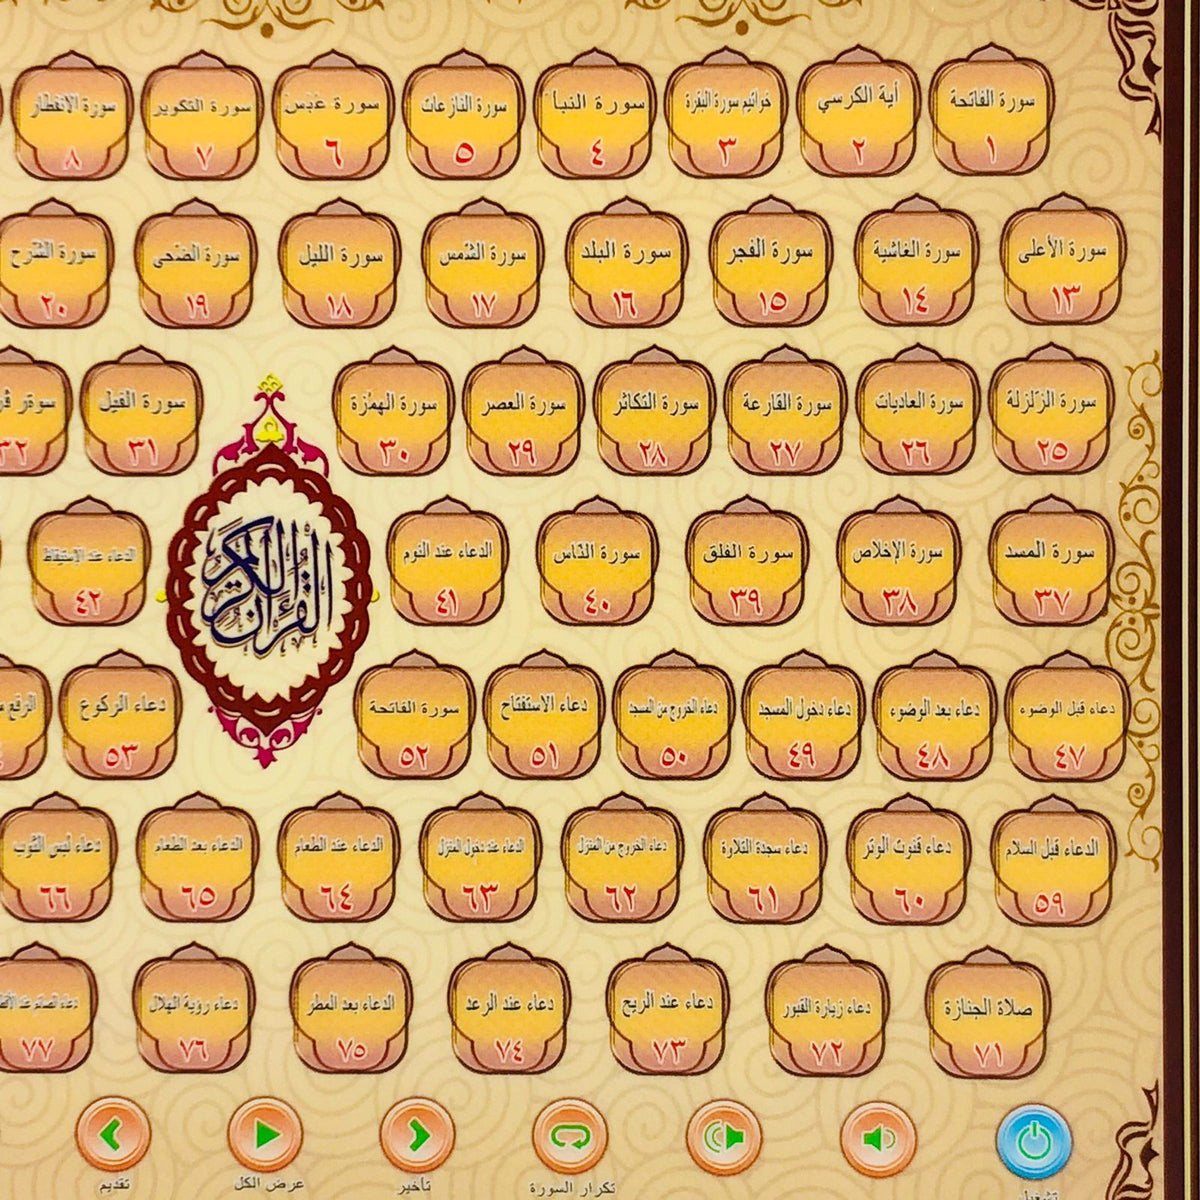 سورة الفاتحة
١
أية الكرسي
٢
خواتيم سورة البقرة
٣
سورة النبأ
٤
سورة النازعات
٥
سورة عَبَسَ
٦
سورة التكوير
٧
سورة الانفطار
٨
سورة الأعلى
١٣
سورة الغاشية
١٤
سورة الفجر
١٥
سورة البلد
١٦
سورة الشّمس
١٧
سورة الليل
١٨
سورة الضّحى
١٩
سورة الشّرح
٢٠
سورة الزلزلة
٢٥
سورة العاديات
٢٦
سورة القارعة
٢٧
سورة التكاثر
٢٨
سورة العصر
٢٩
سورة الهمزة
٣٠
سورة الفيل
٣١
٣٢
سورة المسد
٣٧
سورة الإخلاص
٣٨
سورة الفلق
٣٩
سورة النّاس
٤٠
الدعاء عند النوم
٤١
القرآن الكريم
الدعاء عند الاستيقاظ
٤٢
دعاء قبل الوضوء
٤٧
دعاء بعد الوضوء
٤٨
دعاء دخول المسجد
٤٩
دعاء الخروج من المسجد
٥٠
دعاء الاستفتاح
٥١
سورة الفاتحة
٥٢
دعاء الركوع
٥٣
الدعاء قبل السلام
٥٩
دعاء قنوت الوتر
٦٠
دعاء سجدة التلاوة
٦١
دعاء الخروج من المنزل
٦٢
الدعاء عند دخول المنزل
٦٣
الدعاء عند الطعام
٦٤
الدعاء بعد الطعام
٦٥
دعاء لبس الثوب
٦٦
صلاة الجنازة
٧١
دعاء زيارة القبور
٧٢
دعاء عند الريح
٧٣
دعاء عند الرعد
٧٤
الدعاء بعد المطر
٧٥
دعاء رؤية الهلال
٧٦
دعاء الصائم عند
٧٧
تشغيل
تكرار السورة
تأخير
عرض الكل
تقديم